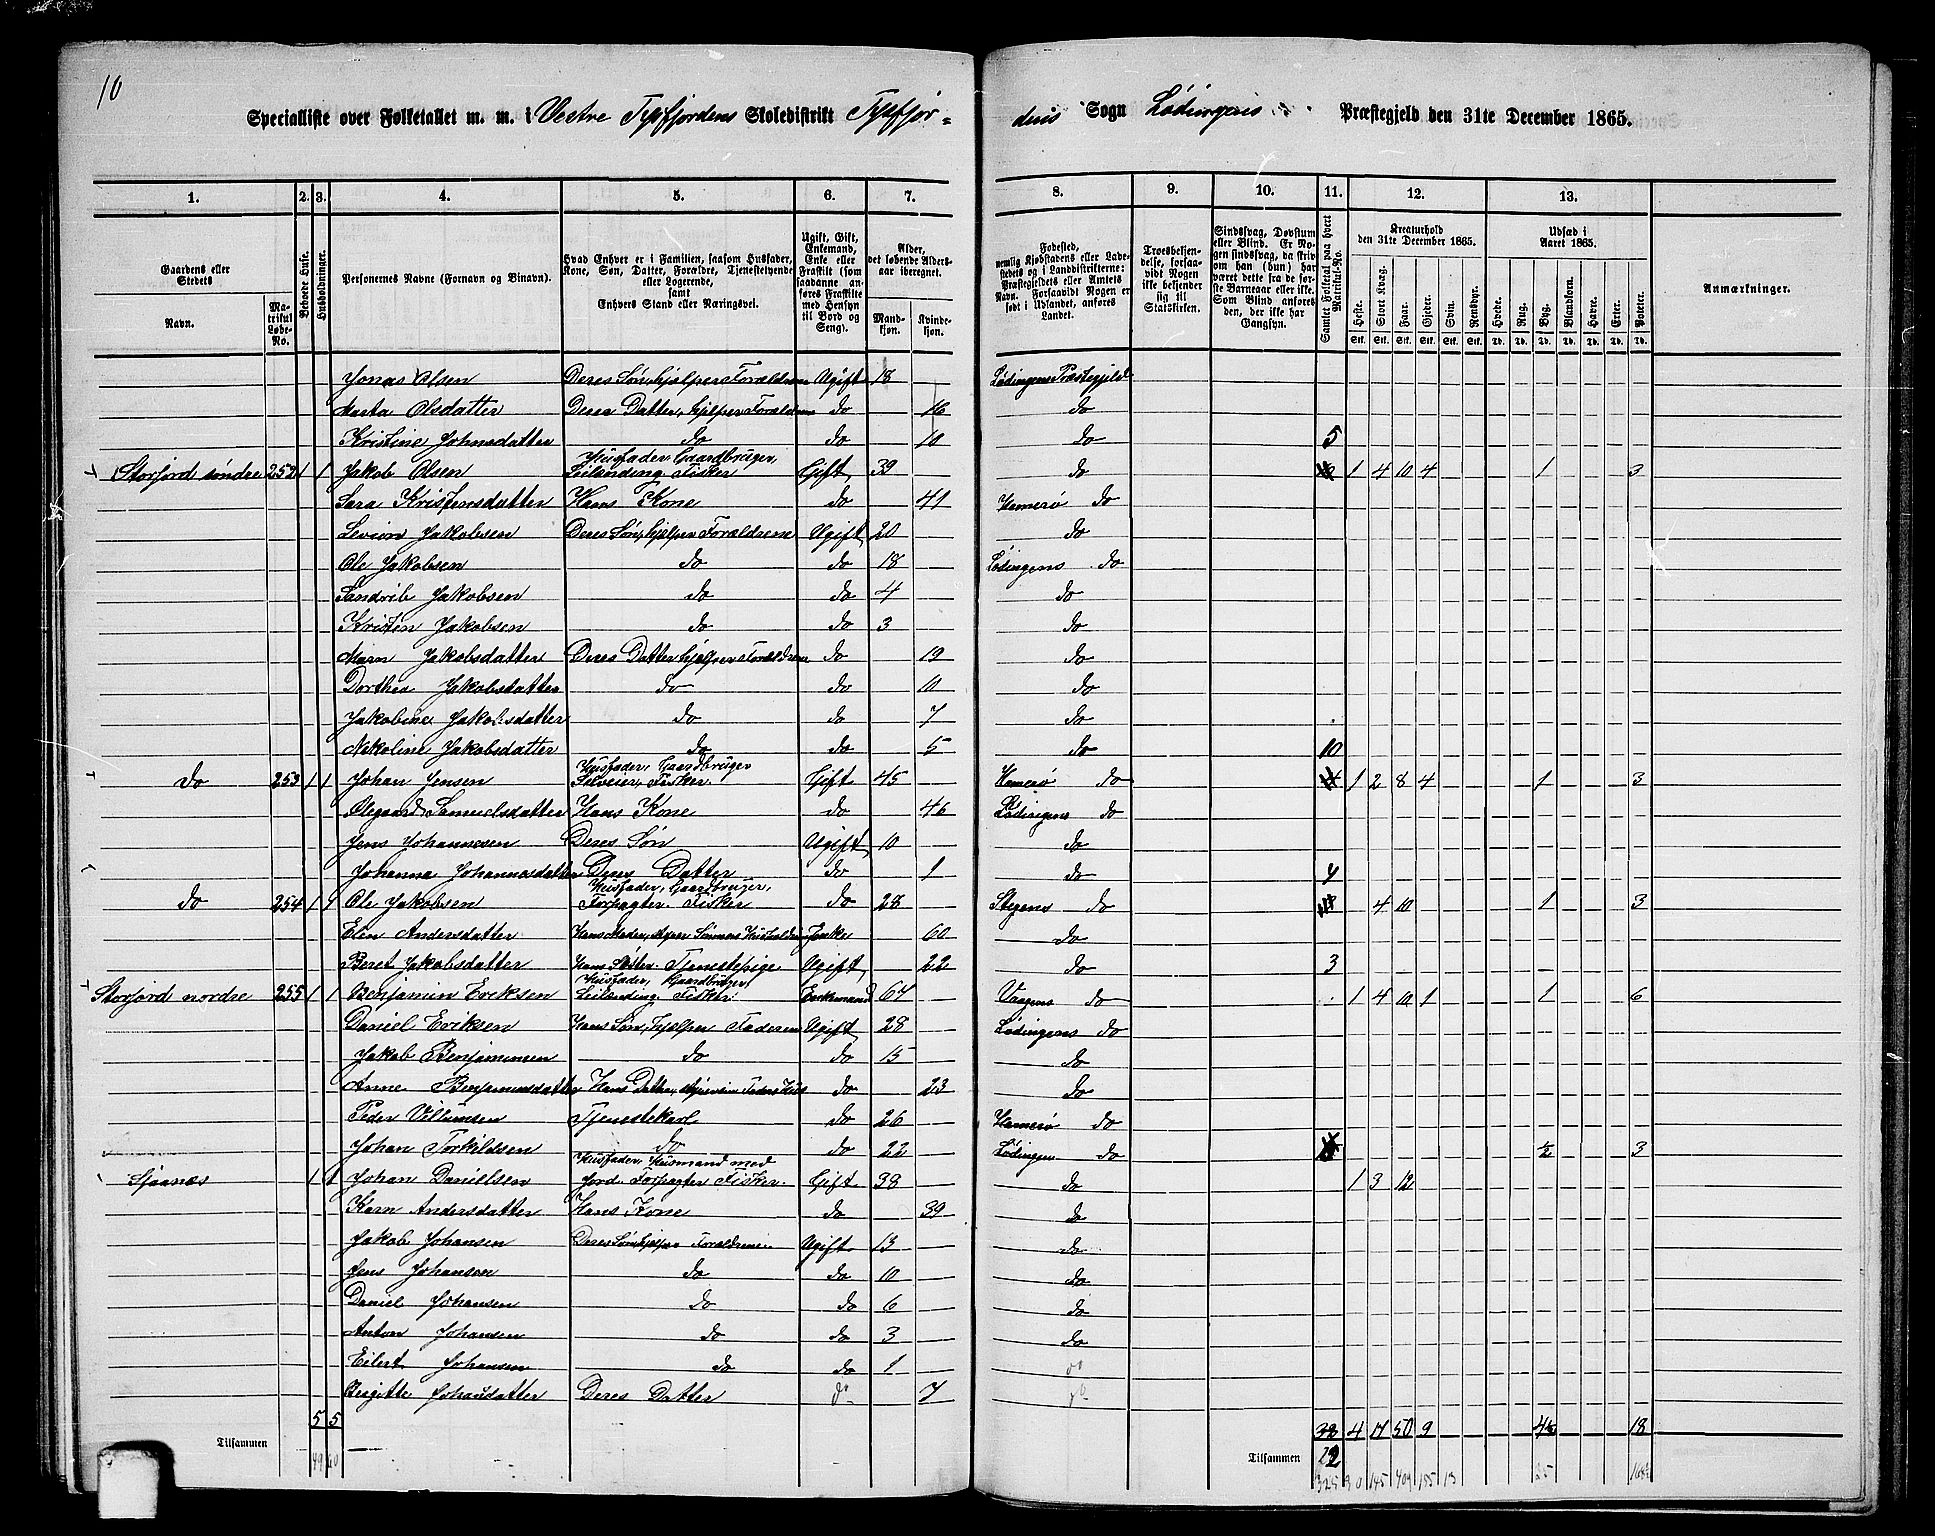 10
Specialliste over Folketallet m. m. i Vestre Tysfjordens Skoledistrikt Tysfjor-
dens Sogn Lødingens Præstegjeld den 31te December 1865.
1. 2. 3. 4. 5. 6. 7. 8. 9. 10. 11. 12. 13.
Gaardens eller Stedets
Navn. Matrikul Løbe-No.
Beboede Huse.
Husholdninger.
Personernes Navne (Fornavn og Binavn).
Hvad Enhver er i Familien, saasom Husfader, Kone, Søn, Datter, Forældre, Tjenestetyende eller Logerende, samt Enhvers Stand eller Næringsvei.
Ugift, Gift, Enkemand, Enke eller Fraskilt (som saadanne anføres Fraskilte med Hensyn til Bord og Seng).
Alder, det løbende Aldersaar iberegnet.
Mandkjøn. Kvindekjøn.
Fødested, nemlig Kjøbstadens eller Ladestedets og i Landdistrikterne: Præstegjeldets eller Amtets Navn. Forsaavidt Nogen er født i Udlandet, anføres Landet.
Troesbekjendelse, forsaavidt Nogen ikke bekjender sig til Statskirken.
Sindssvag, Døvstum eller Blind. Er Nogen sindssvag, da skrives om han (hun) har været dette fra de første Barneaar eller ikke. Som Blind anføres den, der ikke har Gangsyn.
Samlet Folketal paa hvert Matrikul-No.
Kreaturhold den 31te December 1865.
Heste. Stort Kvæg. Faar. Gjeder. Svin. Rensdyr.
Udsæd i Aaret 1865.
Hvede. Rug. Byg. Blandkorn. Havre. Erter. Poteter.
Anmærkninger.
Jonas Olsen Deres Søn, hjelper Forældrene Ugift 18 Lødingens Præstegjeld
Marta Olsdatter Deres Datter, hjelper Forældrene do 16 do
Kristine Johnsdatter do do 10 do 5
Storfjord søndre 252 1 1 Jakob Olsen Husfader, Gaardbruger, Leilending, Fisker Gift 39 do 1 4 10 4 1 3
Sara Kristensdatter Hans Kone do 41 Hamerø do
Jakobsen Deres Søn, hjelper Forældrene Ugift 20 do
Ole Jakobsen do do 18 Lødingens do
Jakobsen do do 4 do
Kristen Jakobsen do do 3 do
Marn Jakobsdatter Deres Datter hjelper Forældrene do 19 do
Dorthea Jakobsdatter do do 10 do
Jakobine Jakobsdatter do do 7 do
Nikoline Jakobsdatter do do 5 do 10
do 253 1 1 Johan Jensen Husfader, Gaardbruger Selveier, Fisker Gift 45 Hamerø do 1 2 8 4 1 3
Olegaard Samuelsdatter Hans Kone do 46 Lødingens do
Jens Johannesen Deres Søn Ugift 10 do
Johanna Johannesdatter Deres Datter do 1 do 4
do 254 1 1 Ole Jakobsen Husfader, Gaardbruger, Forpagter Fisker do 28 Stegens do 4 10 1 3
Elen Andersdatter Hans Moder, Sønnens Enke 60 do
Beret Jakobsdatter Hans Søster. Tjenestepige Ugift 22 do 3
Storfjord nordre 255 1 1 Benjamin Eriksen Husfader, Gaardbruger, Leilending, Fisker Enkemand 64 Vaagens do 1 4 10 1 1 6
Daniel Eriksen Hans Søn, hjelper Faderen Ugift 28 Lødingens do
Jakob Benjaminsen do do 15 do
Anne Benjaminsdatter Hans Datter, Faders Hus do 23 do
Peder Villumsen Tjenestekarl do 26 Hamerø do
Johan Torkildsen do do 22 Lødingen do ½ 3
Sjaanæs 1 1 Johan Danielsen Husfader, Husmand med Jord. Forpagter Fisker Gift 38 do 1 3 12
Karn Andersdatter Hans Kone do 39 do
Jakob Johansen Deres Søn hjelper Forældrene Ugift 13 do
Jens Johansen do do 10 do
Daniel Johansen do do 6 do
Anton Johansen do do 3 do
Eilert Johansen do do 1 do
Birgitte Johansdatter Deres Datter do 7 do
5 5 4 17 50 9 4½ 18
Tilsammen Tilsammen 22
325 30 145 409 155 13 25